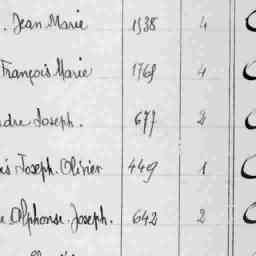 . Jean Marie 1938 4
François Marie 1769 4
dre Joseph. 677 2
is Joseph. Olivier 449 1
e Alphonse. Joseph. 642 2